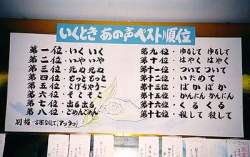 いくときあの声ベスト順位
第一位・いくいく
第二位・いやいや
第三位・死ぬ死ぬ
第四位・もっともっと
第五位・こげちゃう
第六位・そこそこ
第七位・出る出る
第八位・ごめんごめん
第九位・ゆるしてゆるして
第十位・はやくはやく
第十一位・ついてついて
第十二位・いためて
第十三位・ばかばか
第十四位・かんにんかんにん
第十五位・くるくる
第十六位・殺して殺して